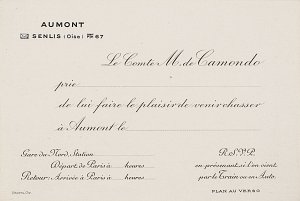 AUMONT
SENLIS (Oise) 67
Le Comte M. de Camondo
prie
de lui faire le plaisir de venir chasser
à Aumont le
Gare du Nord, Station
Départ de Paris à heures
Retour: Arrivée à Paris à heures
R.S.V.P.
en précisant si l'on vient
par le Train ou en Auto.
PLAN AU VERSO